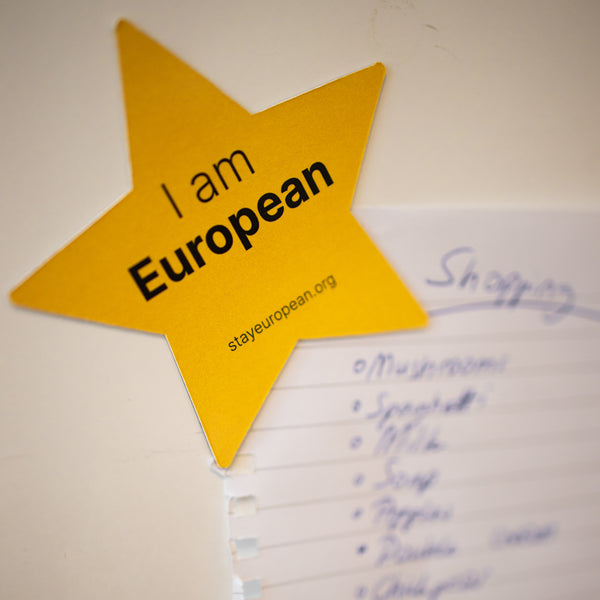 I am
European
stayeuropean.org
Shopping
Mushrooms
Spaghetti
Milk
Soap
Double cream